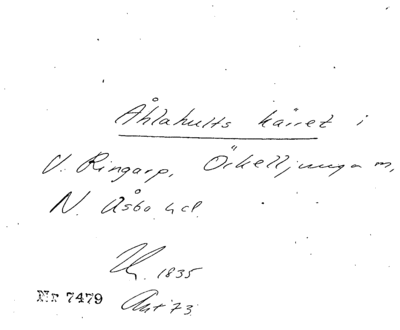 Åhlahults kärret i
V. Ringarp, Örkelljunga m,
N. Åsbo hd.
1835
Nr 7479 Avt 73